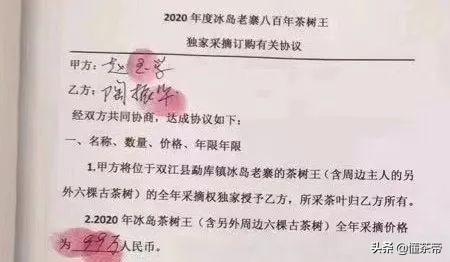 2020 年度冰岛老寨八百年茶树王
独家采摘订购有关协议
甲方：赵玉学
乙方：陶振华
经双方共同协商，达成协议如下：
一、名称、数量、价格、年限年限
1.甲方将位于双江县勐库镇冰岛老寨的茶树王（含周边主人的另
外六棵古茶树）的全年采摘权独家授予乙方，所采茶叶归乙方所有。
2.2020 年冰岛茶树王（含另外周边六棵古茶树）全年采摘价格
为 99万人民币。
头条 @懂茶帝